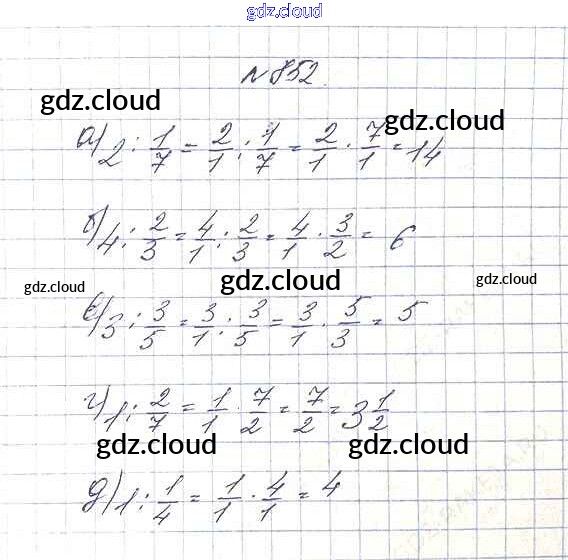 gdz.cloud
№852.
gdz.cloud
gdz.cloud
а) 2 : 1/7 = 2/1 : 1/7 = 2/1 · 7/1 = 14
б) 4 : 2/3 = 4/1 : 2/3 = 4/1 · 3/2 = 6
gdz.cloud
gdz.cloud
gdz.cloud
в) 3 : 3/5 = 3/1 : 3/5 = 3/1 · 5/3 = 5
г) 1 : 2/7 = 1/1 · 7/2 = 7/2 = 3 1/2
gdz.cloud
gdz.cloud
д) 1 : 1/4 = 1/1 · 4/1 = 4